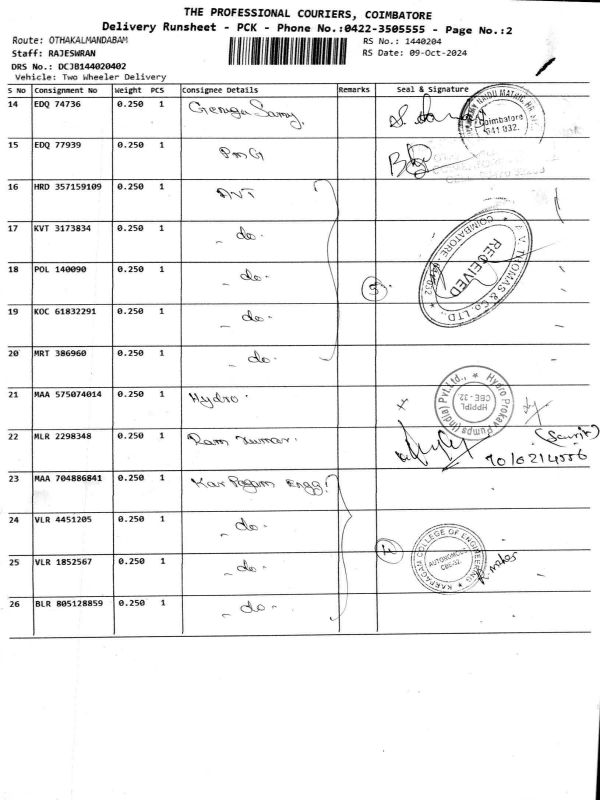 THE PROFESSIONAL COURIERS, COIMBATORE
Delivery Runsheet - PCK - Phone No.:0422-3505555 - Page No.:2
Route: OTHAKALMANDABAM
RS No.: 1440204
Staff: RAJESWRAN
RS Date: 09-Oct-2024
DRS No.: DCJB144020402
Vehicle: Two Wheeler Delivery
S No Consignment No Weight PCS Consignee Details Remarks Seal & Signature
14 EDQ 74736 0.250 1
Coimbatore
641 032.
15 EDQ 77939 0.250 1 PMG
16 HRD 357159109 0.250 1 AVT
17 KVT 3173834 0.250 1 - do -
18 POL 140090 0.250 1 - do -
5
A.V. THOMAS & CO. LTD.,
COIMBATORE - 641 032
RECEIVED
19 KOC 61832291 0.250 1 - do -
20 MRT 386960 0.250 1 - do -
21 MAA 575074014 0.250 1 Hydro.
Hydro Prokav Pumps (India) Pvt.Ltd.,
HPPIPL
CBE-32.
22 MLR 2298348 0.250 1 Ram Kumar.
23 MAA 704886841 0.250 1 Karpagam Engg.
24 VLR 4451205 0.250 1 - do -
4
KARPAGAM COLLEGE OF ENGINEERING
AUTONOMOUS
CBE-32.
25 VLR 1852567 0.250 1 - do -
26 BLR 805128859 0.250 1 - do -